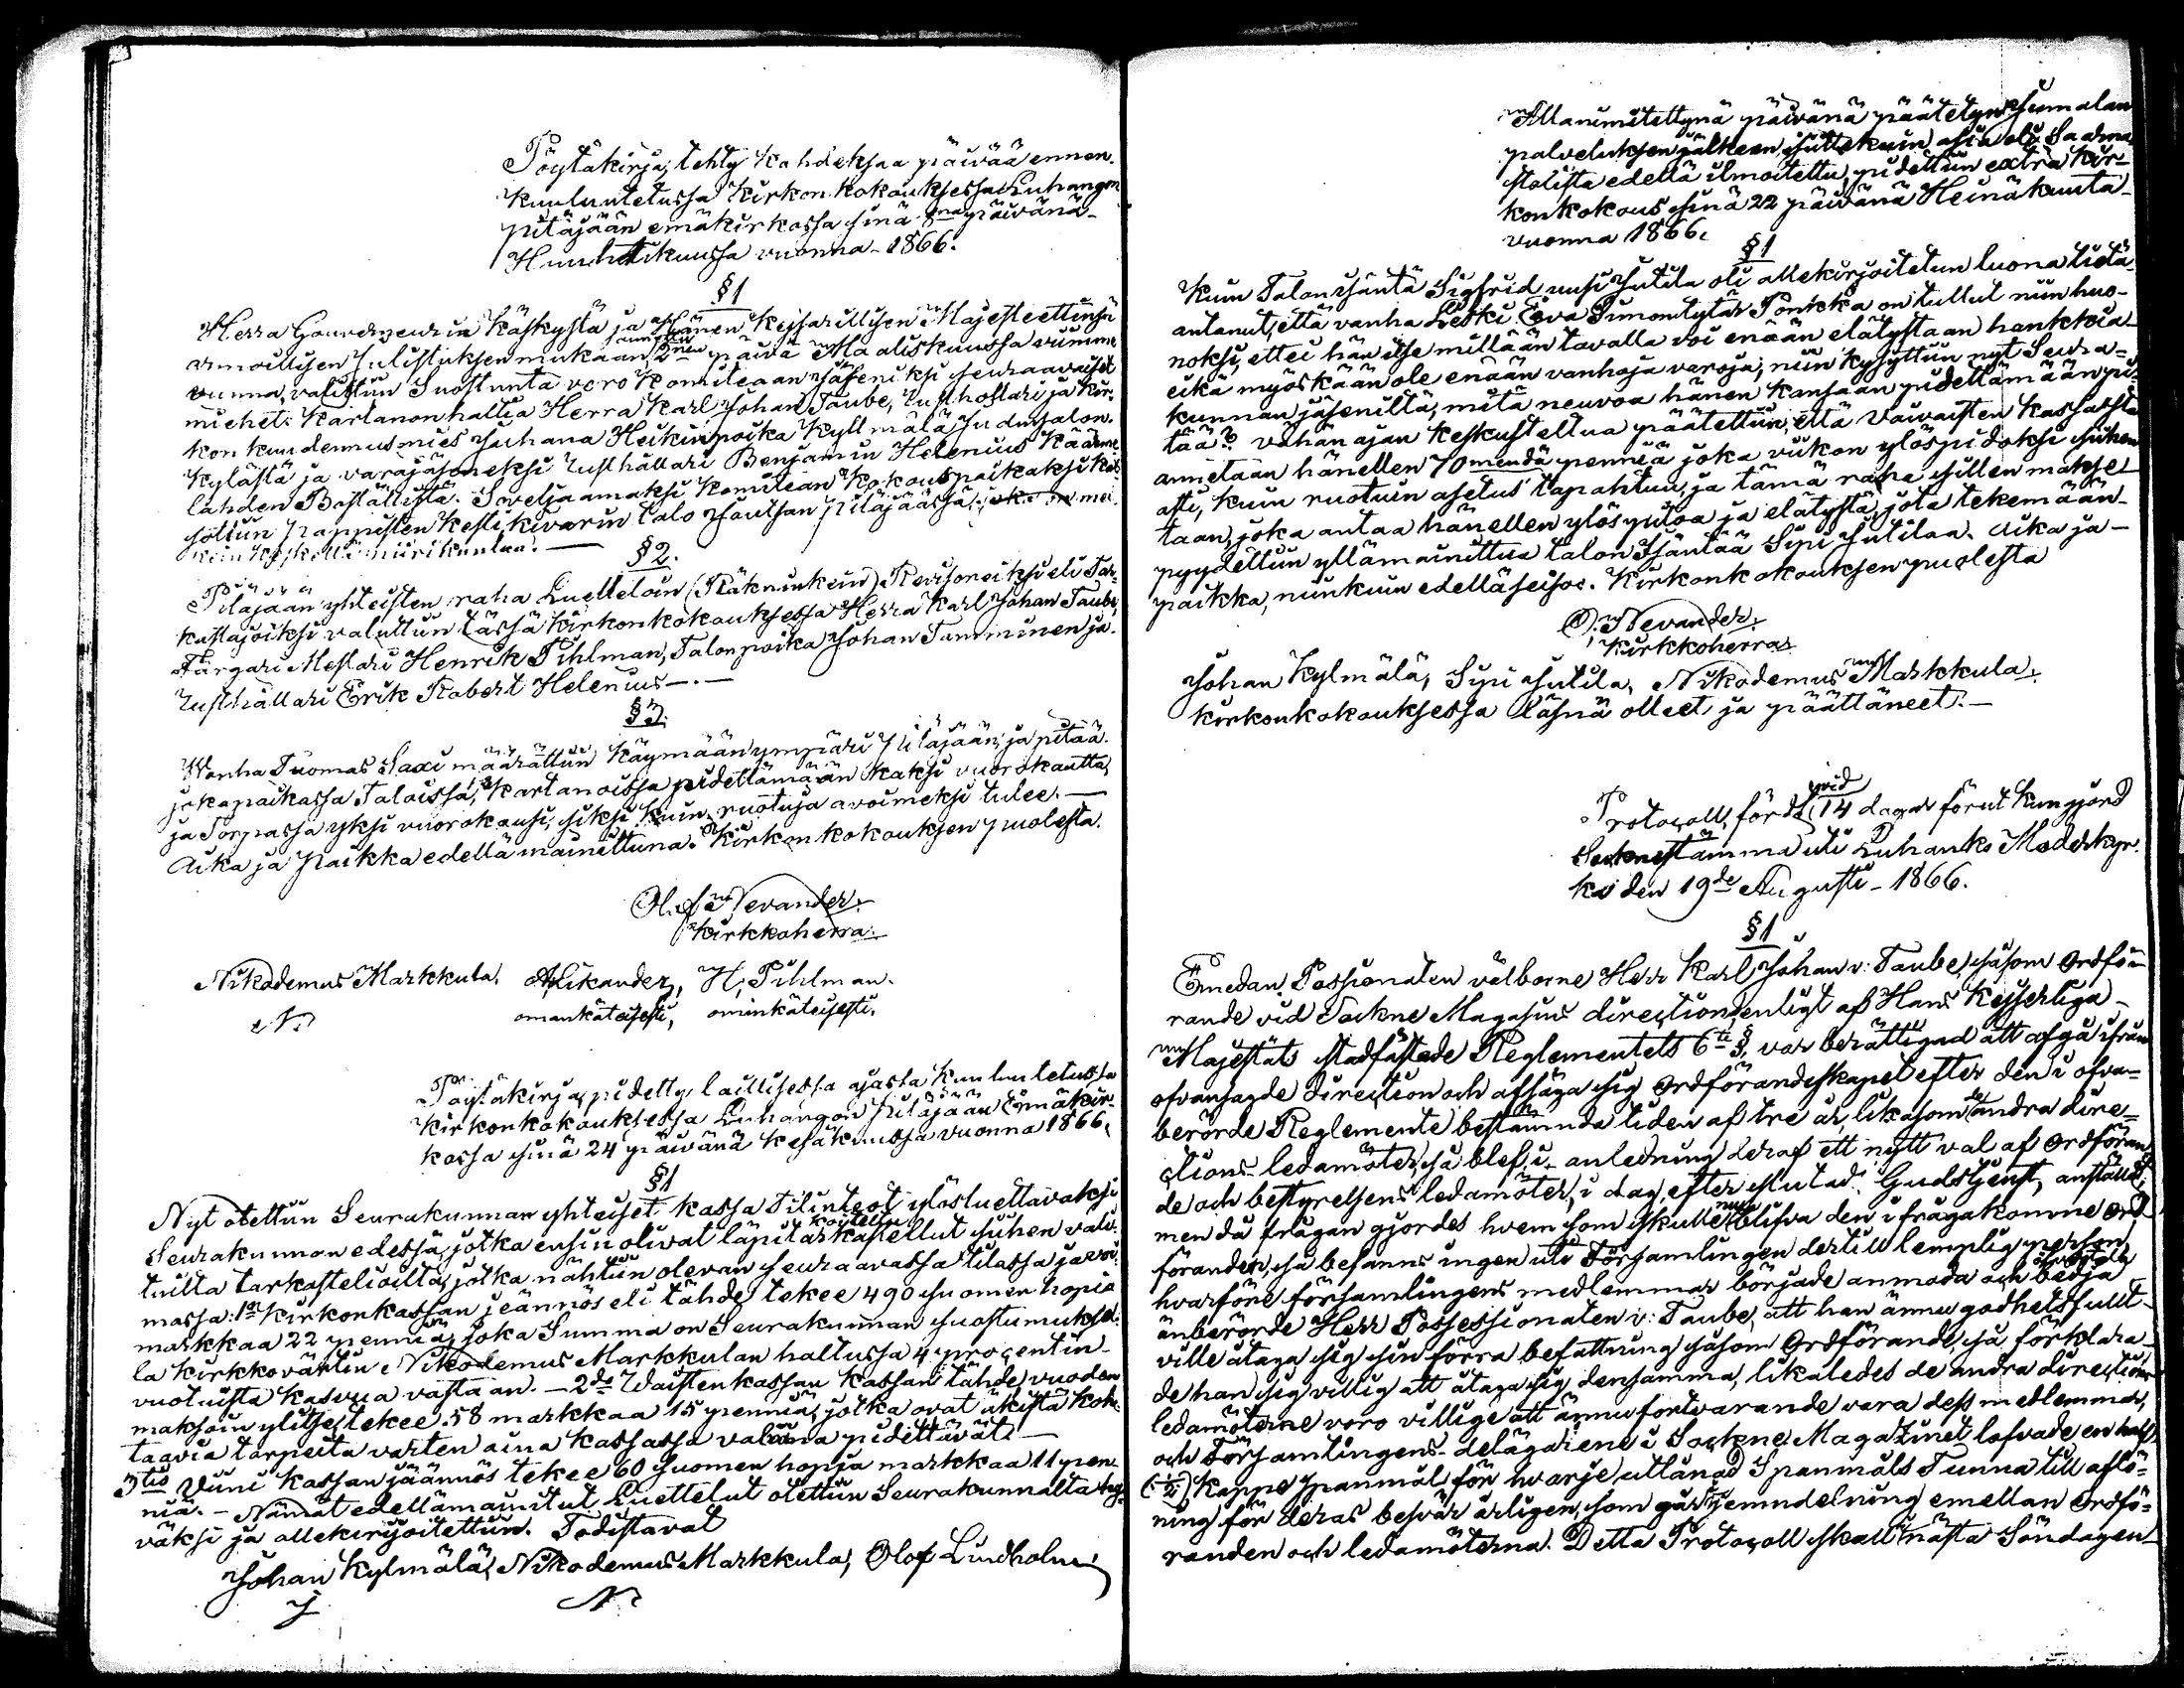 Pöytäkirja, tehty kahdeksaa päivää ennen
kuulutetussa kirkon kokouksessa Luhangon
pitäjään emäkirkossa sinä päivänä
Huhtikuussa vuonna 1866.
§ 1
Herra Gouvernörin käskystä ja Hänen Keisarillisen Majesteettinsä
armollisen Julistuksen mukaan 2nen päivä Maaliskuussa viimme
vuonna, valittiin Suostunta vero Komiteaan jäseniksi seuraavaiset
miehet: Kartanonhaltia Herra Karl Johan Taube, Rusthollari ja Kir-
kon kuudennusmies Juhana Heikinpoika Kyllmälä
kylästä ja varajäseneksi Rusthållari Benjamin Helenius Käärme
lahden Boställistä. Soveljaamaksi Komitean Kokouspaikaksi kat-
sottiin Kestikivarin talo Joutsan pitäjäässä,
keskellä hiirikuntaa.
§ 2.
Pitäjään yhteisten raha Luetteloin (Räkninkein) Revisoreiksi eli Tar-
kastajoiksi valittiin tässä kirkonkokouksessa Herra Karl Johan Taube,
Färgari Mestari Henrik Pihlman, Talonpoika Johan Tamminen ja
Rusthållari Erik Robert Helenius —.—
§ 3
Wanha Tuomas Saxi määrättiin käymään ympäri pitäjään, ja pitää
jokapaikassa Taloissa, Kartanoissa pidettämään kaksi vuorokautta,
ja Torpassa yksi vuorokausi, siksi kuin ruotuja avoimeksi tulee. —
Aika ja paikka edellä mainittuna. Kirkon kokouksen puolesta.
Olof Nevander.
Kirkkoherra.
Nikodemus Markkula, A. Likander, H. Pihlman.
N. omankäteisesti, ominkäteisesti.
Pöytäkirja, pidetty laillisessa ajassa kuuluutetussa
Kirkonkokouksessa Luhangon Pitäjään Emäkir-
kossa sinä 24 päivänä Kesäkuussa vuonna 1866.
§ 1
Nyt otettiin Seurakunnan yhteiset kassa Tilinteot ylösluettavaksi
Seurakunnan edessä, jotka ensin olivat läpitarkastellut siihen vali-
tuilta tarkastelioilta, jotka nähtiin olevan seuraavassa tilassa ja voi-
massa: 1o Kirkonkassan jäännös eli tähde tekee 490 suomen hopia
markkaa 22 penniä, joka Summa on Seurakunnan suostumuksel-
la Kirkkovärtin Nikodemus Markkulan haltussa 4 procentin
vuotuista kasvua vastaan. — 2do Waistenkassan kassan tähde, vuoden
maksoin ylitse, tekee 58 markkaa 15 penniä, jotka ovat äkistä koh-
taavia tarpeita varten aina kassassa valvinna pidettävät. —
3tio Viini kassan jäännös tekee 60 suomen hopja markkaa 11 pen-
niä. — Nämät edellämainitut Luettelut otettiin Seurakunnalta hy-
väksi ja allekirjoitettiin. Todistavat
Johan Kylmälä, Nikodemus Markkula, Olof Lindholm
J N
Allanimitettynä päivänä päätetyn Jumalan
palveluksen jälkeen, siittekuin asia oli Saarna
stolista edellä ilmoitettu, pidettiin extra kir-
konkokous sinä 22 päivänä Heinäkuuta
vuonna 1866.
§ 1
Kuin Talon Isäntä Sigfrid uusi Jutila oli allekirjoitetun luona tietä
antanut, että vanha Leski Eva Simontytär Ponkka on tullut niin huo-
noksi, ettei hän itse millään tavalla voi enään elätystään hankkia
eikä myöskään ole enään vanhoja varoja, niin kysyttiin nyt Seura-
kunnan jäseniltä, mitä neuvoa hänen kanssaan pidettämään pi-
tää? vähän ajan keskusteltua päätettiin, että Vaivaisten kassasta
annetaan hänellen 70mendä penniä joka viikon ylöspidoksi siihen
asti, kuin ruotuin asetus tapahtuu, ja tämä raha sillen makse-
taan, joka antaa hänellen ylöspitoa ja elätystä, jota tekemään
pyydettiin yllämainittua talon Isäntää Sipi Jutilaa. Aika ja —
paikka, niinkuin edelläseisoo. Kirkonkokouksen puolesta
O. Nevander.
Kirkkoherra
Johan Kylmälä, Sipi Jutila, Nikodemus Markkula.
kirkonkokouksessa läsnä olleet ja päättäneet. —
Protocoll, förd vid 14 dagar förut kungjord
Sockenstämma uti Luhanko Moderkyr-
ka den 19de Augusti 1866.
§ 1
Emedan Possionaten välborne Herr Karl Johan v: Taube, såsom Ordfö-
rande vid Sockne Magasins direction, enligt af Hans Kejserliga
Majestäts stadfästade Reglementets 6te §, var berättigad att afgå ifrån
ofvansagde direction och afsäga sig Ordförandeskapet efter den i ofvan-
berörde Reglemente bestämda tiden af tre år, likasom de andra dire-
ctions ledamöter, så blef, i anledning deraf ett nytt val af Ordföran-
de och bestyrelsens ledamöter, i dag, efter slutad Gudstjenst, anstäldt,
men då frågan gjordes hvem som skulle nu blifva den i frågakomne Ord-
föranden, så befanns ingen uti Församlingen dertill lemplig person,
hvarföre församlingens medlemmar började anmoda och bedja
änberörde Herr Possessionaten v: Taube, att han ännu godhetsfullt
ville åtaga sig sin förra befattning såsom Ordförande, så förklara-
de han sig villig att åtaga sig densamma, likaledes de andra directions
ledamöterne voro villige att ännu fortvarande vara dess medlemmar,
och Församlingens delägariene i Sockne Magazinet lofvade en half
(½) kappe spanmål för hvarje utlånad Spanmåls Tunna till aflö-
ning för deras besvär årligen, som går till jemndelning emellan Ordfö-
randen och ledamöterna. Detta Protocoll skall nästa Söndagen